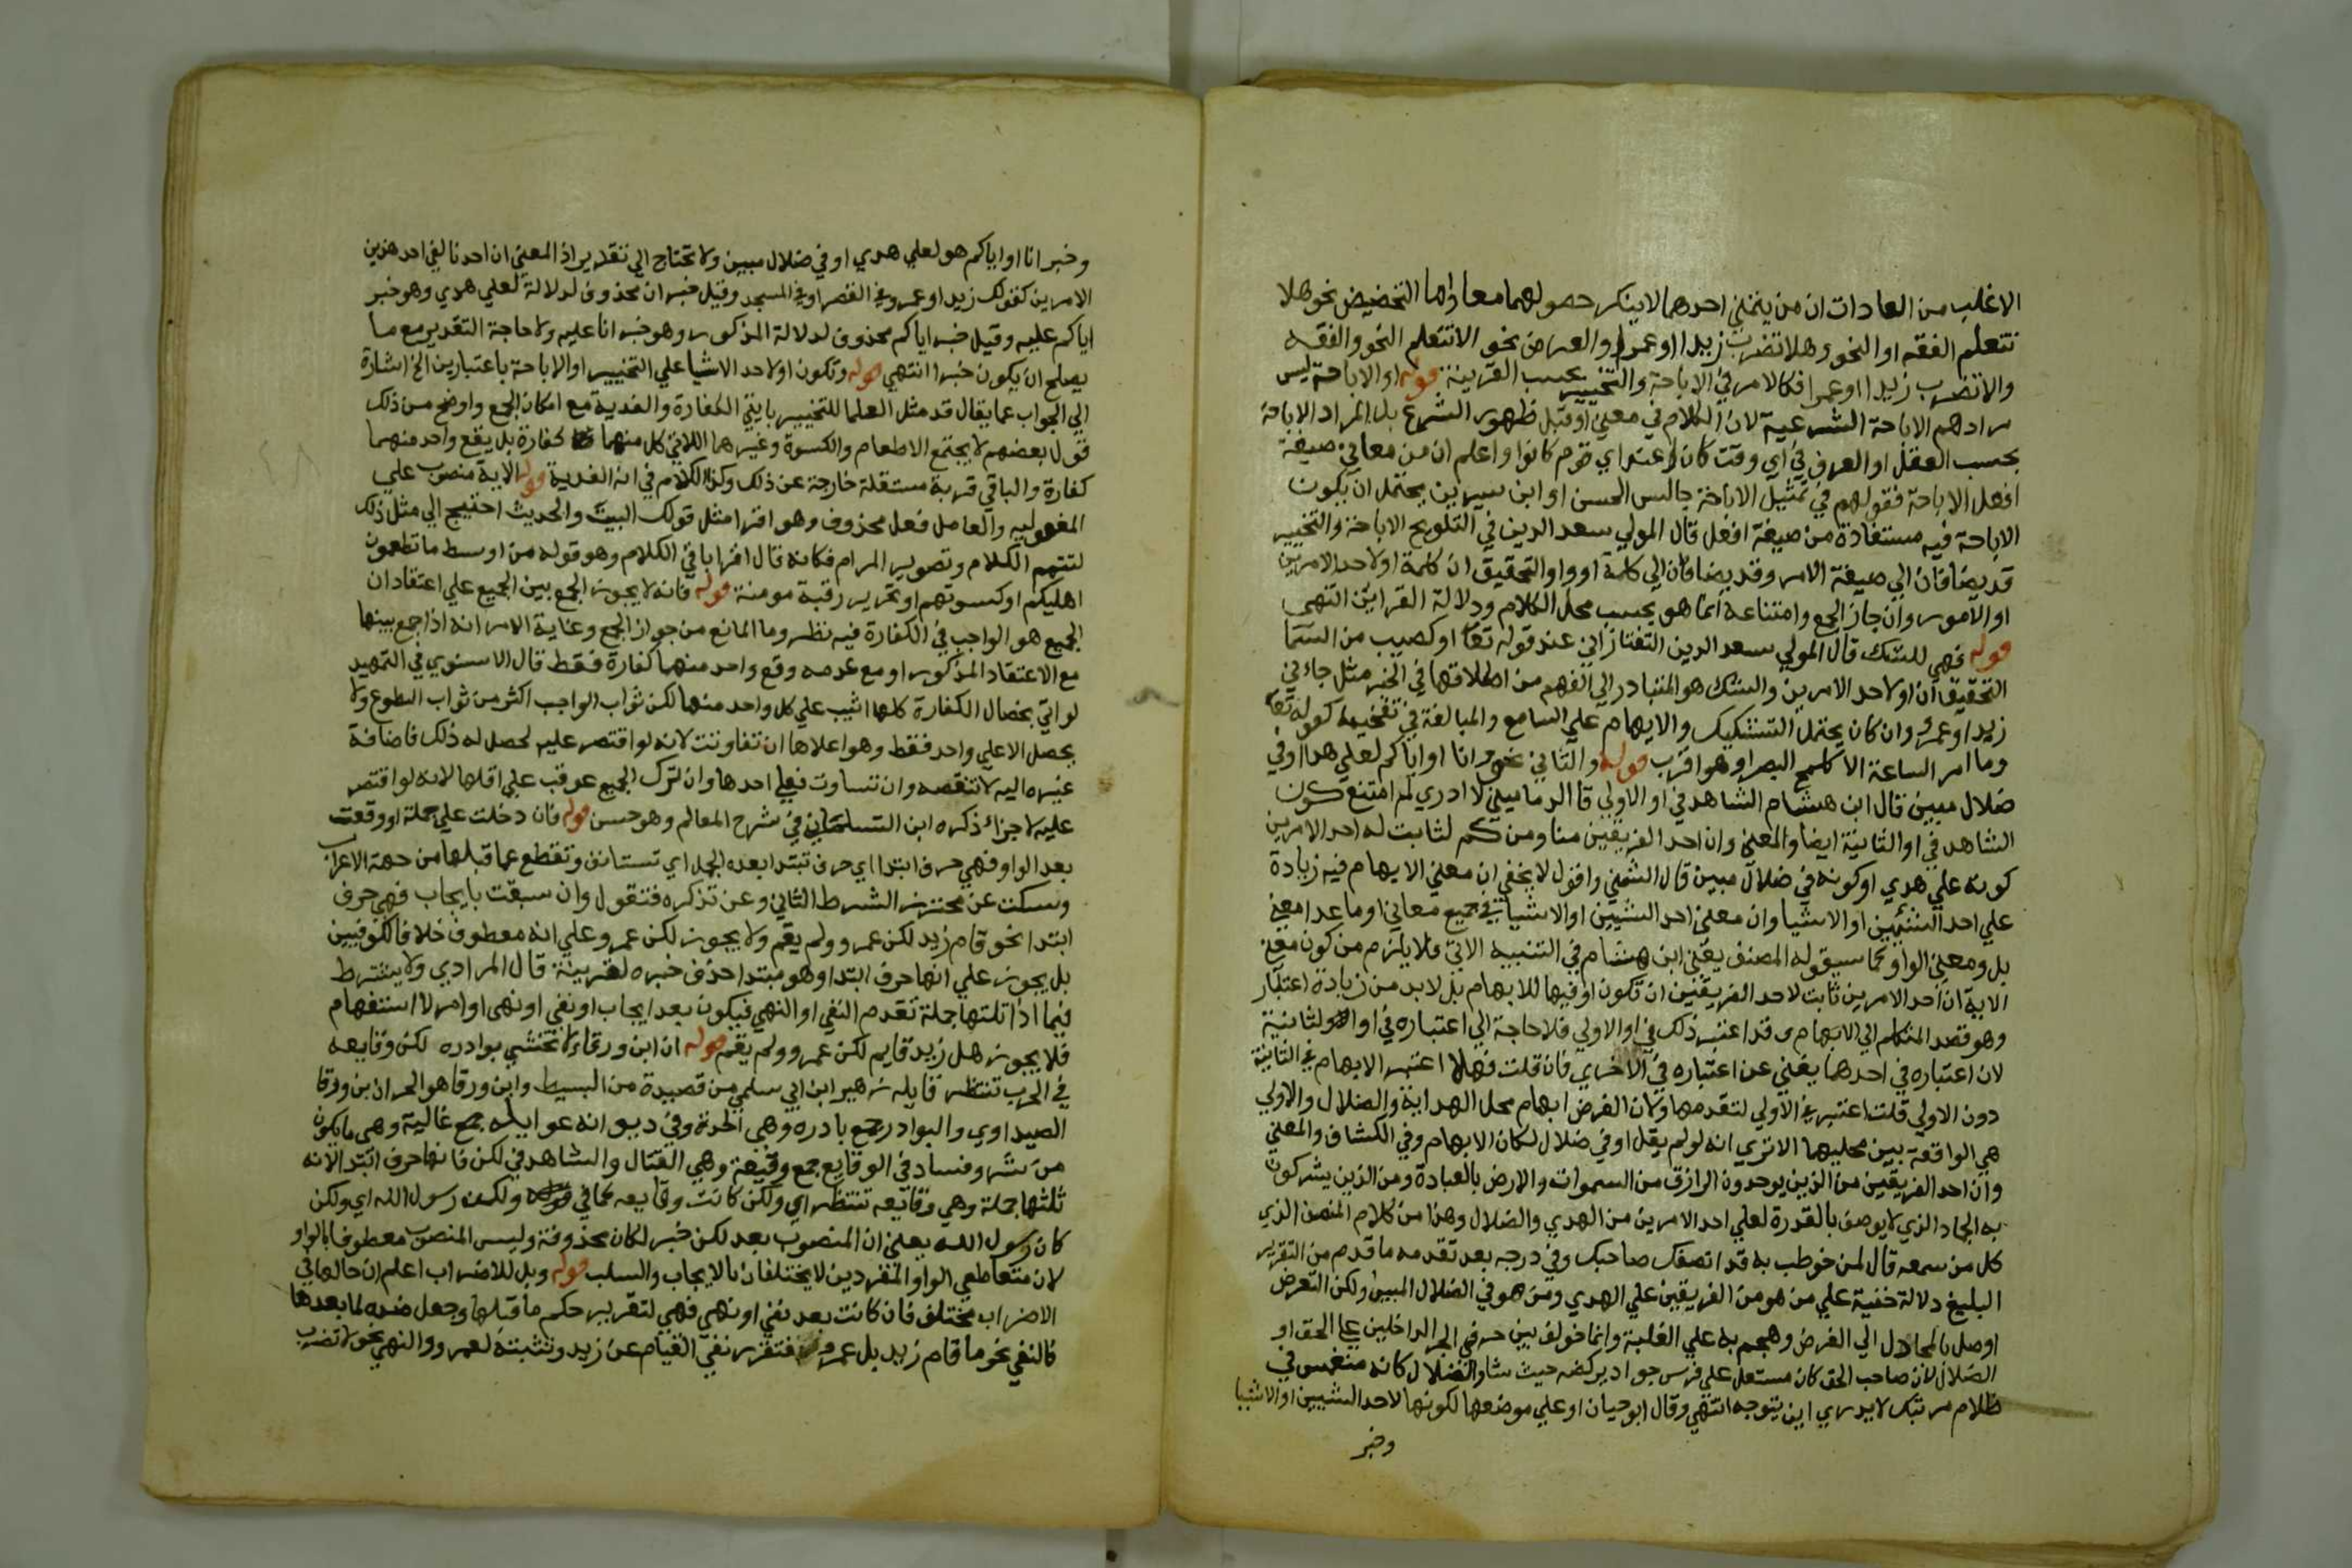 الاغلب من العادات ان من يتمني احدهما لا ينكر حصولهما معا واما التحضيض نحو هلا
تتعلم الفقه او النحو وهلا تضرب زيدا او عمرا والعرض نحو الا تتعلم النحو والفقه
والا تضرب زيدا او عمرا فكالامر في الاباحة والتخيير بحسب القرينة قوله او الاباحة ليس
مرادهم الاباحة الشرعية لان الكلام في معني او قبل ظهور الشرع بل المراد الاباحة
بحسب العقل او العرف في اي وقت كان وعند اي قوم كانوا واعلم ان من معاني صيغة
افعل الاباحة فقولهم في تمثيل الاباحة جالس الحسن او ابن سيرين يحتمل ان يكون
الاباحة فيه مستفادة من صيغة افعل قال المولي سعد الدين في التلويح الاباحة والتخيير
قد يضافان الي صيغة الامر وقد يضافان الي كلمة او والتحقيق ان كلمة او لاحد الامرين
او الامور وان جاز الجمع وامتناعه انما هو بحسب محل الكلام ودلالة القراين انتهي
قوله فهي للشك قال المولي سعد الدين التفتازاني عند قوله تعا او كصيب من السما
التحقيق ان او لاحد الامرين والشك هو المتبادر الي الفهم من اطلاقها في الخبر مثل جاءني
زيد او عمرو وان كان يحتمل التشكيك والابهام علي السامع والمبالغة في تفخيمه كقوله تعا
وما امر الساعة الا كلمح البصر او هو اقرب قوله والثاني نحو وانا او اياكم لعلي هدا او في
ضلال مبين قال ابن هشام الشاهد في او الاولي قال الدماميني لا ادري لم امتنع كون
الشاهد في او الثانية ايضا والمعني وان احد الفريقين منا ومنكم لثابت له احد الامرين
كونه علي هدي او كونه في ضلال مبين قال الشمني واقول لا يخفي ان معني الابهام فيه زيادة
علي احد الشيئين او الاشيا وان معني احد الشيين او الاشيا في جميع معاني او ما عدا معني
بل ومعني الواو كما سيقوله المصنف يعني ابن هشام في التنبيه الاتي فلا يلزم من كون معني
الاية ان احد الامرين ثابت لاحد الفريقين ان تكون او فيها للابهام بل لا بد من زيادة اعتبار
وهو قصد المتكلم الي الابهام وقد اعتبر ذلك في او الاولي فلا حاجة الي اعتباره في او الثانية
لان اعتباره في احدهما يغني عن اعتباره في الاخري فان قلت فهلا اعتبر الابهام في الثانية
دون الاولي قلت اعتبر في الاولي لتقدمها ولان الغرض ابهام محل الهداية والضلال والاولي
هي الواقعة بين محليها الا تري انه لو لم يقل او في ضلال لكان الابهام وفي الكشاف والمعني
وان احد الفريقين من الذين يوحدون الرازق من السموات والارض بالعبادة ومن الذين يشركون
به الجماد الذي لا يوصف بالقدرة لعلي احد الامرين من الهدي والضلال وهذا من كلام المنصف الذي
كل من سمعه قال لمن خوطب به قد انصفك صاحبك وفي درجه بعد تقدمه ما قدم من التقرير
البليغ دلالة خفية علي من هو من الفريقين علي الهدي ومن هو في الضلال المبين ولكن التعرض
اوصل بالمجادل الي الغرض وهجم به علي الغلبة وانما خولف بين حرفي الجر الداخلين علي الحق او
الضلال لان صاحب الحق كان مستعل علي فرس جواد يركضه حيث شا والضلال كانه منغمس في
ظلام مرتبك لا يدري اين يتوجه انتهي وقال ابو حيان او علي موضعها لكونها لاحد الشيين او الاشيا
وخبر
وخبر انا او اياكم هو لعلي هدي او في ضلال مبين ولا تحتاج الي تقدير اذ المعني ان احدنا لفي احد هذين
الامرين كقولك زيد او عمرو في القصر او في المسجد وقيل خبر ان محذوف لدلالة لعلي هدي وهو خبر
اياكم عليه وقيل خبر اياكم محذوف لدلالة المذكور وهو خبر انا عليه ولا حاجة التقدير مع ما
يصلح ان يكون خبرا انتهي قوله وتكون او لاحد الاشيا علي التخيير او الاباحة باعتبارين الخ اشارة
الي الجواب عما يقال قد مثل العلما للتخيير بايتي الكفارة والفدية مع امكان الجمع واوضح من ذلك
قول بعضهم لا يجتمع الاطعام والكسوة وغيرهما اللاتي كل منهما كفارة بل يقع واحد منهما
كفارة والباقي قربة مستقلة خارجة عن ذلك وكذا الكلام في اية الفدية قوله الاية منصوب علي
المفعولية والعامل فعل محذوف وهو اقرا مثل قولك البيت والحديث احتيج الي مثل ذلك
لتتميم الكلام وتصوير المرام فكانه قال اقرا باقي الكلام وهو قوله من اوسط ما تطعمون
اهليكم او كسوتهم او تحرير رقبة مومنة قوله فانه لا يجوز الجمع بين الجميع علي اعتقاد ان
الجميع هو الواجب في الكفارة فيه نظر وما المانع من جواز الجمع وغاية الامر انه اذا جمع بينها
مع الاعتقاد المذكور او مع عدمه وقع واحد منهما كفارة فقط قال الاسنوي في التمهيد
لو اتي بخصال الكفارة كلها اثيب علي كل واحد منها لكن ثواب الواجب اكثر من ثواب التطوع ولا
يحصل الا علي واحد فقط وهو اعلاها ان تفاوتت لانه لو اقتصر عليه لحصل له ذلك فاضافة
غيره اليه لا تنقصه وان تساوت فعلي احدها وان ترك الجميع عوقب علي اقلها لانه لو اقتصر
عليه لاجزاء ذكره ابن التلمساني في شرح المعالم وهو حسن قوله فان دخلت علي جملة او وقعت
بعد الواو فهي حرف ابتدا اي حرف تبتدا بعده الجمل اي تستانف وتقطع عما قبلها من جهة الاعراب
وسكت عن محترز الشرط الثاني وعن تذكره فتقول وان سبقت بايجاب فهي حرف
ابتدا نحو قام زيد لكن عمرو ولم يقم ولا يجوز لكن عمرو علي انه معطوف خلافا للكوفيين
بل يجوز علي انها حرف ابتدا وهو مبتدا حذف خبره لقرينة قال المرادي ولا يشترط
فيما اذا تلتها جملة تقدم النفي او النهي فيكون بعد ايجاب او نفي او نهي او امر لا استفهام
فلا يجوز هل زيد قايم لكن عمرو ولم يقم قوله ان ابن ورقاء لا تخشي بوادره لكن وقايعه
في الحرب تنتظر قايله زهير ابن ابي سلمي من قصيدة من البسيط وابن ورقا هو الحرث ابن ورقا
الصيداوي والبوادر جمع بادره وهي الحدة وفي ديوانه غوايله جمع غايلة وهي ما يكون
من شر وفساد في الوقايع جمع وقيعة وهي القتال والشاهد في لكن فانها حرف ابتدا لانه
تلتها جملة وهي وقايعه تنتظر اي ولكن كانت وقايعه كما في قوله ولكن رسول الله اي ولكن
كان رسول الله يعني ان المنصوب بعد لكن خبر لكان محذوفة وليس المنصوب معطوفا بالواو
لان متعاطفي الواو المفردين لا يختلفان بالايجاب والسلب قوله وبل للاضراب اعلم ان حالها في
الاضراب مختلف فان كانت بعد نفي او نهي فهي لتقرير حكم ما قبلها وجعل ضده لما بعدها
فالنفي نحو ما قام زيد بل عمرو فتقرر نفي القيام عن زيد وتثبته لعمرو والنهي نحو لا تضرب